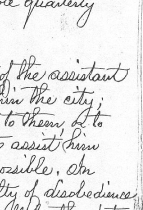 quarterly
of the assistant
in the city;
to them, & to
assist him
possible, on
of disobedience